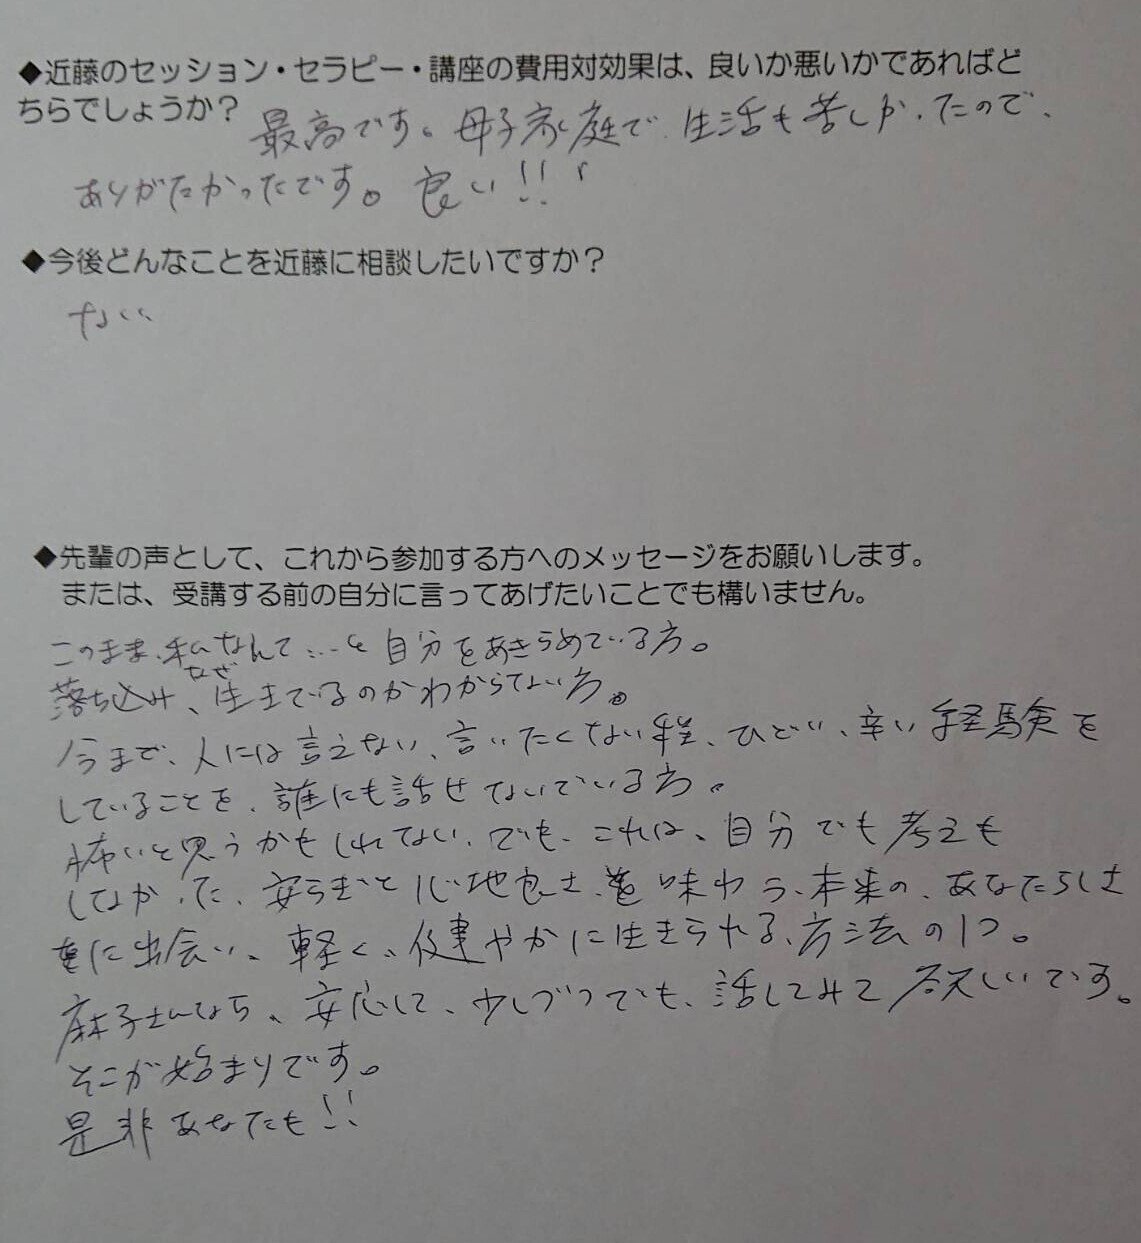 ◆近藤のセッション・セラピー・講座の費用対効果は、良いか悪いかであればど
ちらでしょうか?
最高です。母子家庭で、生活も苦しかったので、
ありがたかったです。良い!!
◆今後どんなことを近藤に相談したいですか?
ない
◆先輩の声として、これから参加する方へのメッセージをお願いします。
または、受講する前の自分に言ってあげたいことでも構いません。
このまま、私なんて…と自分をあきらめている方。
落ち込み、なぜ生きているのかわからない方。
今まで、人には言えない、言いたくない程、ひどい、辛い経験を
していることを、誰にも話せないでいる方。
怖いと思うかもしれない、でも、これは、自分でも考えも
しなかった、安らぎと心地良さを味わう、本来の、あなたらしさ
に出会い、軽く、健やかに生きられる、方法の1つ。
麻子さんなら、安心して、少しづつでも、話してみて欲しいです。
そこが始まりです。
是非あなたも!!